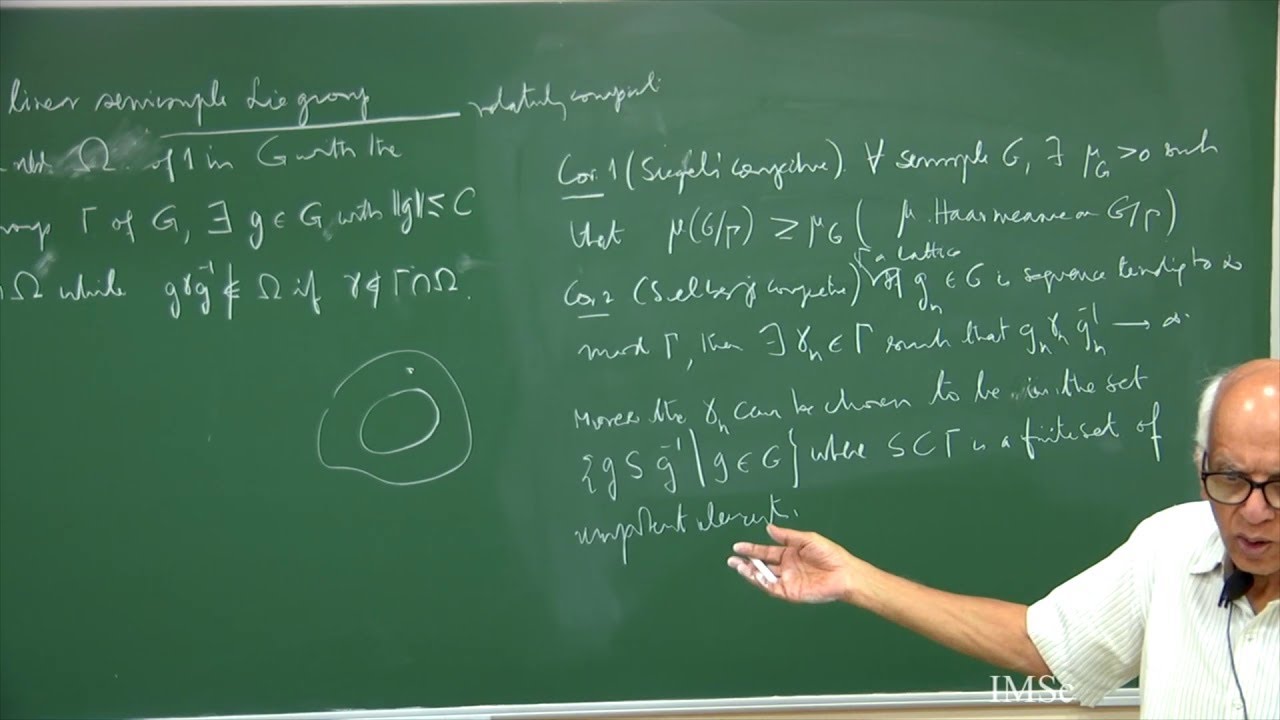 linear semisimple Lie group relatively compact
nbd. Ω of 1 in G with the
Γ of G, ∃ g ∈ G, with ||g|| ≤ C
Ω while gγg⁻¹ ∉ Ω if γ ∉ Γ∩Ω.
Cor. 1 (Siegel's conjecture). ∀ semisimple G, ∃ μ_G > 0 such
that μ(G/Γ) ≥ μ_G ( μ Haar measure on G/Γ)
Γ a lattice
Cor 2 (Selberg's conjecture) If g_n ∈ G is sequence tending to ∞
mod Γ, then ∃ γ_n ∈ Γ such that g_n γ_n g_n⁻¹ → ∞.
the γ_n can be chosen to be in the set
{g S g⁻¹ | g ∈ G} where S ⊂ Γ is a finite set of
unipotent elements.
IMSc